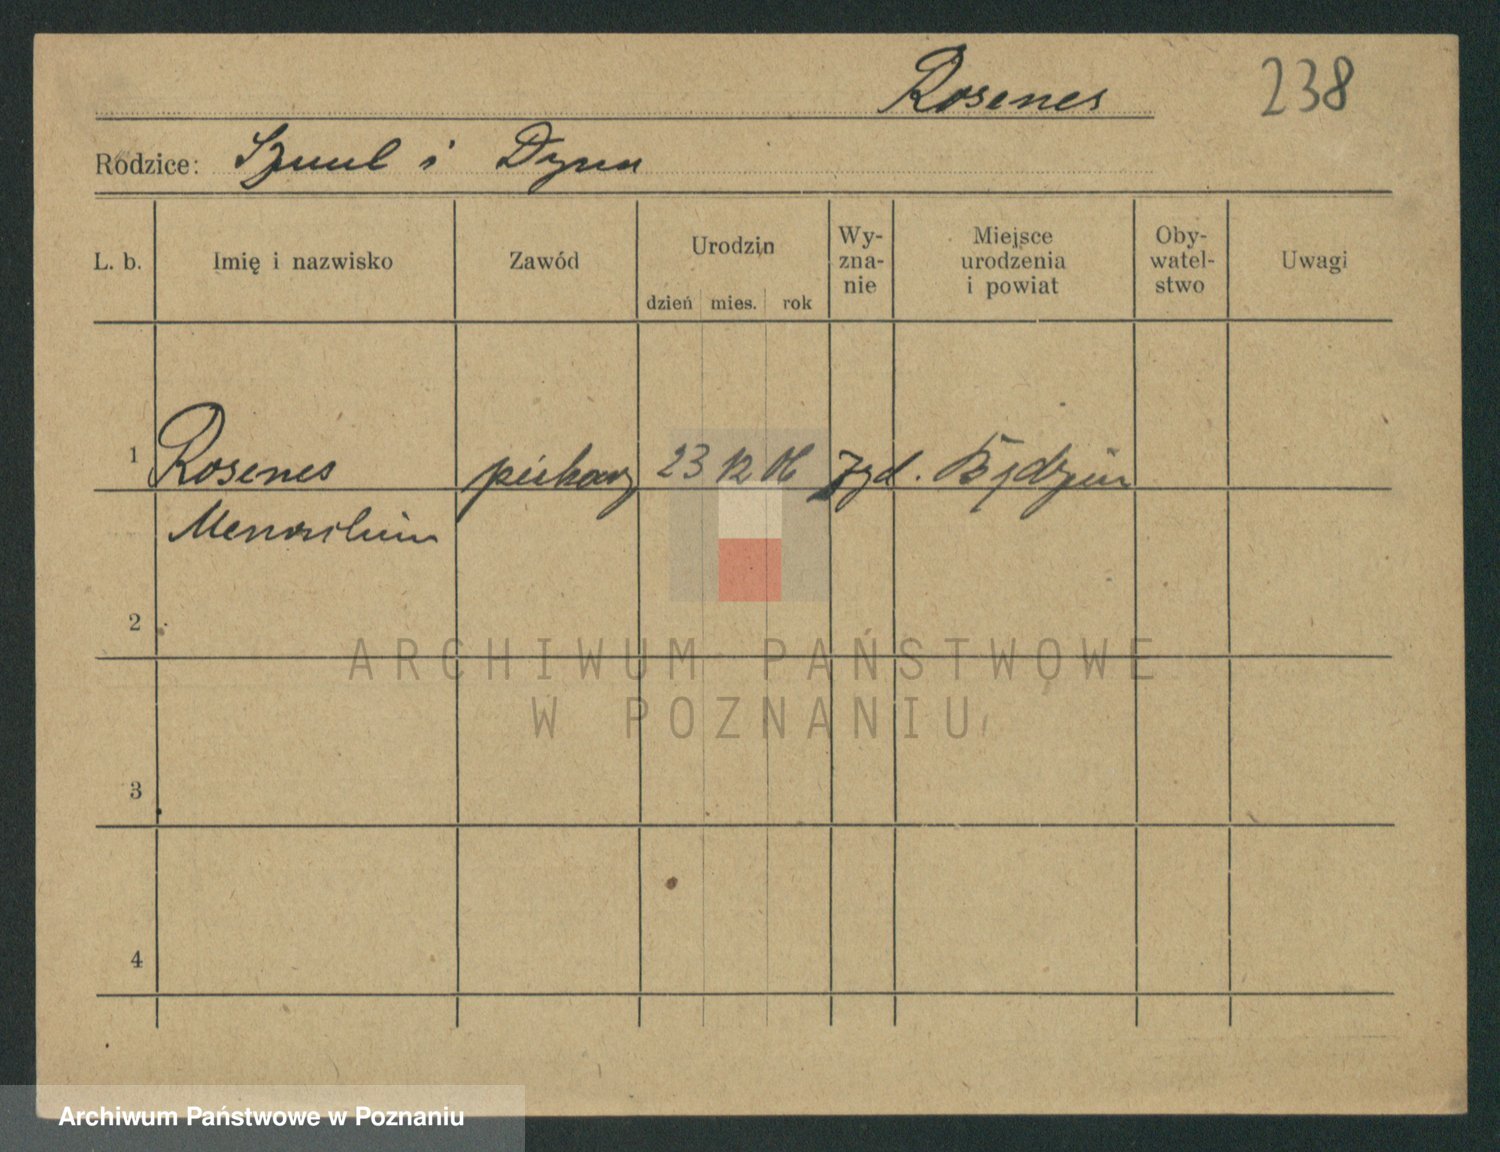 Rosenes 238
Rodzice: Szmul i Dyna
L. b. Imię i nazwisko Zawód Urodzin dzień mies. rok Wy-zna-nie Miejsce urodzenia i powiat Oby-watel-stwo Uwagi
1 Rosenes piekarz 23 12 06 żyd. Będzin
2
3
4
ARCHIWUM PAŃSTWOWE
W POZNANIU
Archiwum Państwowe w Poznaniu